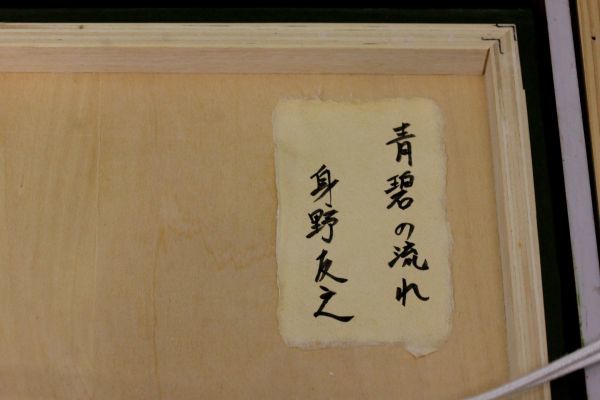 青碧の流れ
身野友之